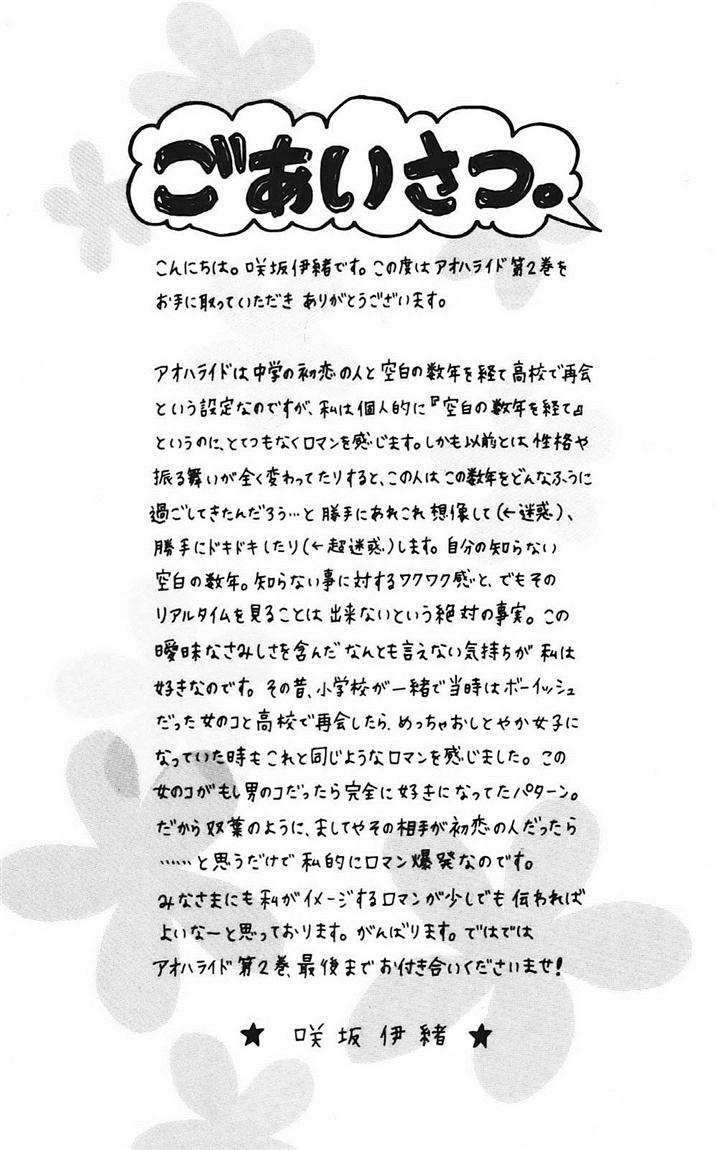 ごあいさつ。
こんにちは。咲坂伊緒です。この度はアオハライド第2巻を
お手に取っていただき ありがとうございます。
アオハライドは中学の初恋の人と空白の数年を経て高校で再会
という設定なのですが、私は個人的に『空白の数年を経て』
というのに、とてつもなくロマンを感じます。しかも以前とは性格や
振る舞いが全く変わってたりすると、この人はこの数年をどんなふうに
過ごしてきたんだろう…と勝手にあれこれ想像して(←迷惑)、
勝手にドキドキしたり(←超迷惑)します。自分の知らない
空白の数年。知らない事に対するワクワク感と、でもその
リアルタイムを見ることは出来ないという絶対の事実。この
曖昧なさみしさを含んだなんとも言えない気持ちが私は
好きなのです。その昔、小学校が一緒で当時はボーイッシュ
だった女のコと高校で再会したら、めっちゃおしとやか女子に
なっていた時もこれと同じようなロマンを感じました。この
女のコがもし男のコだったら完全に好きになってたパターン。
だから双葉のように、ましてやその相手が初恋の人だったら
……と思うだけで私的にロマン爆発なのです。
みなさまにも私がイメージするロマンが少しでも伝われば
よいなーと思っております。がんばります。ではでは
アオハライド第2巻、最後までお付き合いくださいませ!
★ 咲坂伊緒 ★